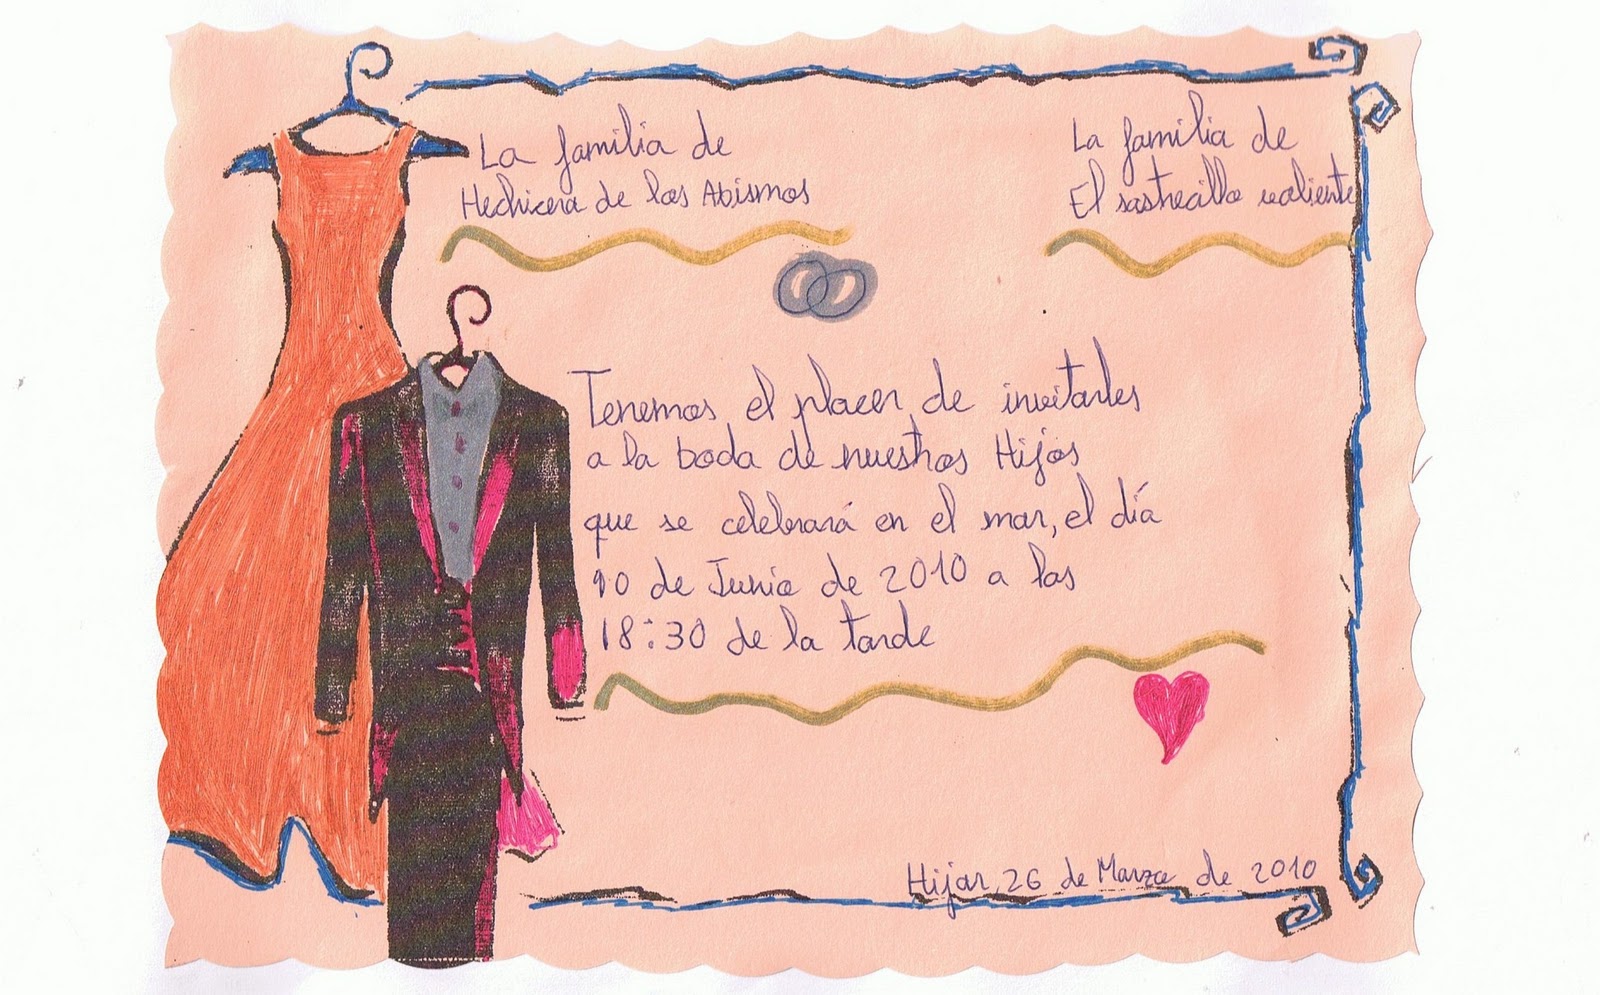 La familia de
Hechicera de los Abismos
La familia de
El sastrecillo valiente
Tenemos el placer de invitarles
a la boda de nuestros Hijos
que se celebrará en el mar, el día
10 de Junio de 2010 a las
18:30 de la tarde
Hijar, 26 de Marzo de 2010